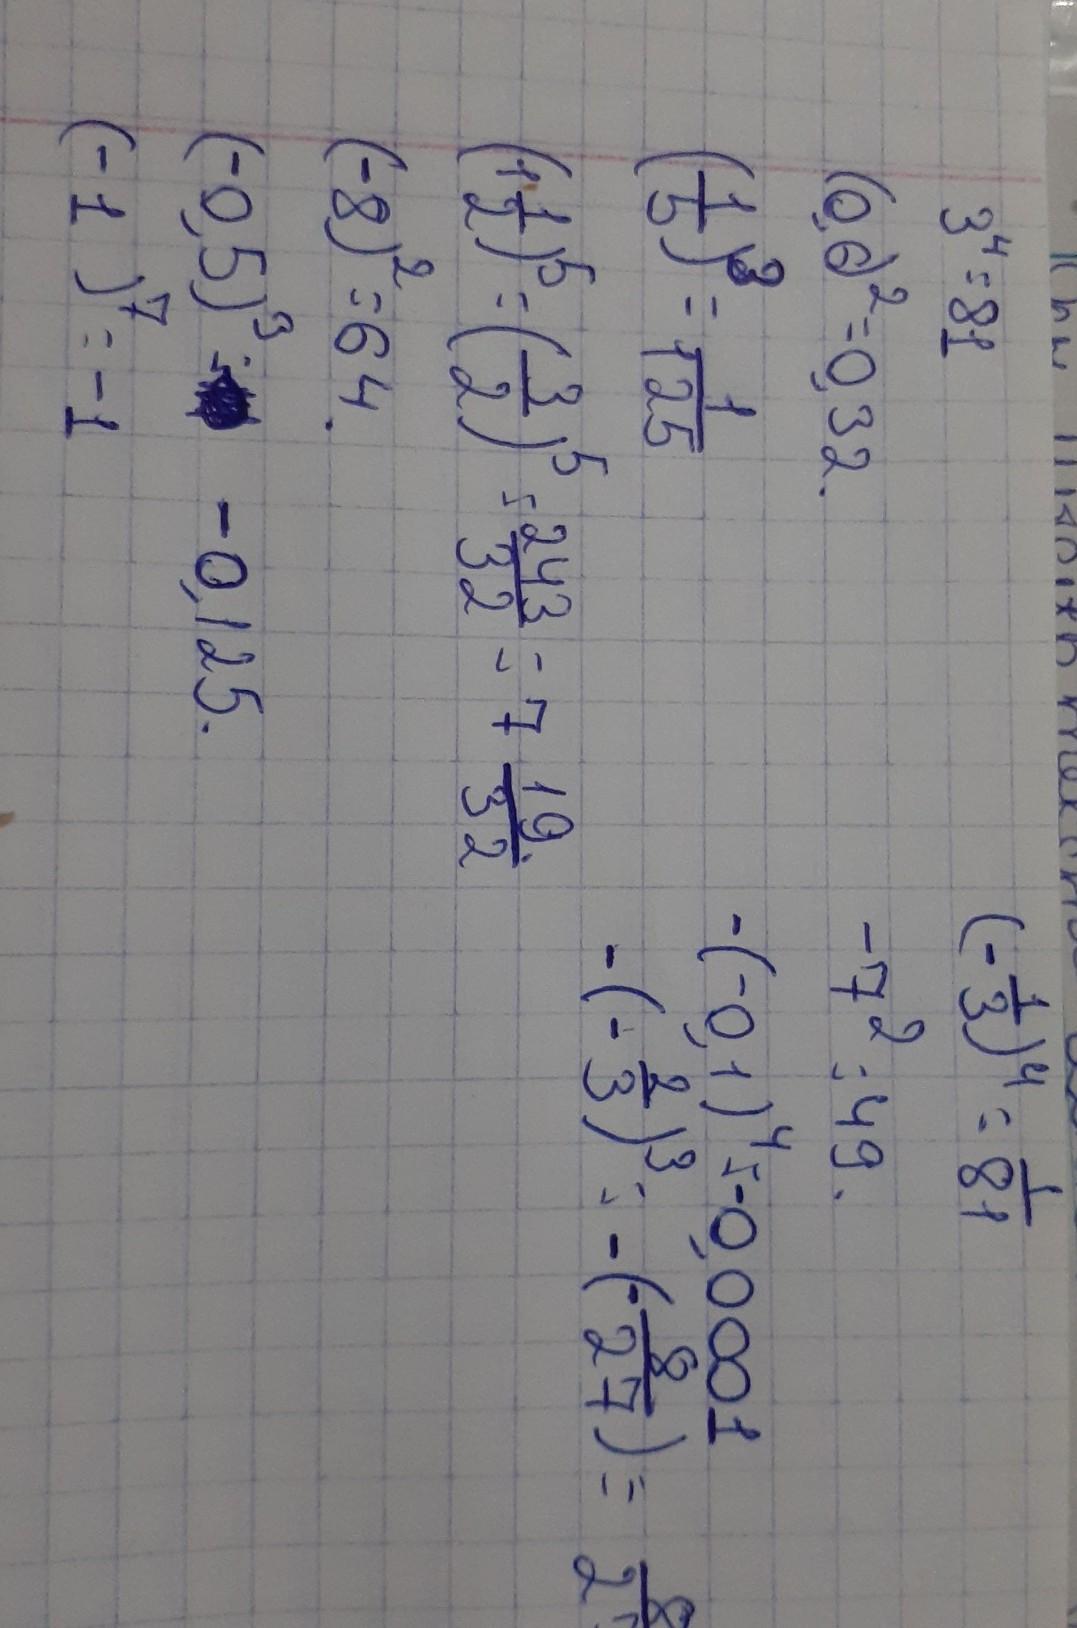 3⁴ = 81
(0,6)² = 0,32.
(1/5)³ = 1/125
(1 1/2)⁵ = (3/2)⁵ = 243/32 = 7 19/32.
(-8)² = 64.
(-0,5)³ = -0,125.
(-1)⁷ = -1
(-1/3)⁴ = 1/81
-7² = 49.
-(-0,1)⁴ = -0,0001
-(-2/3)³ = -(-8/27) = 8/2